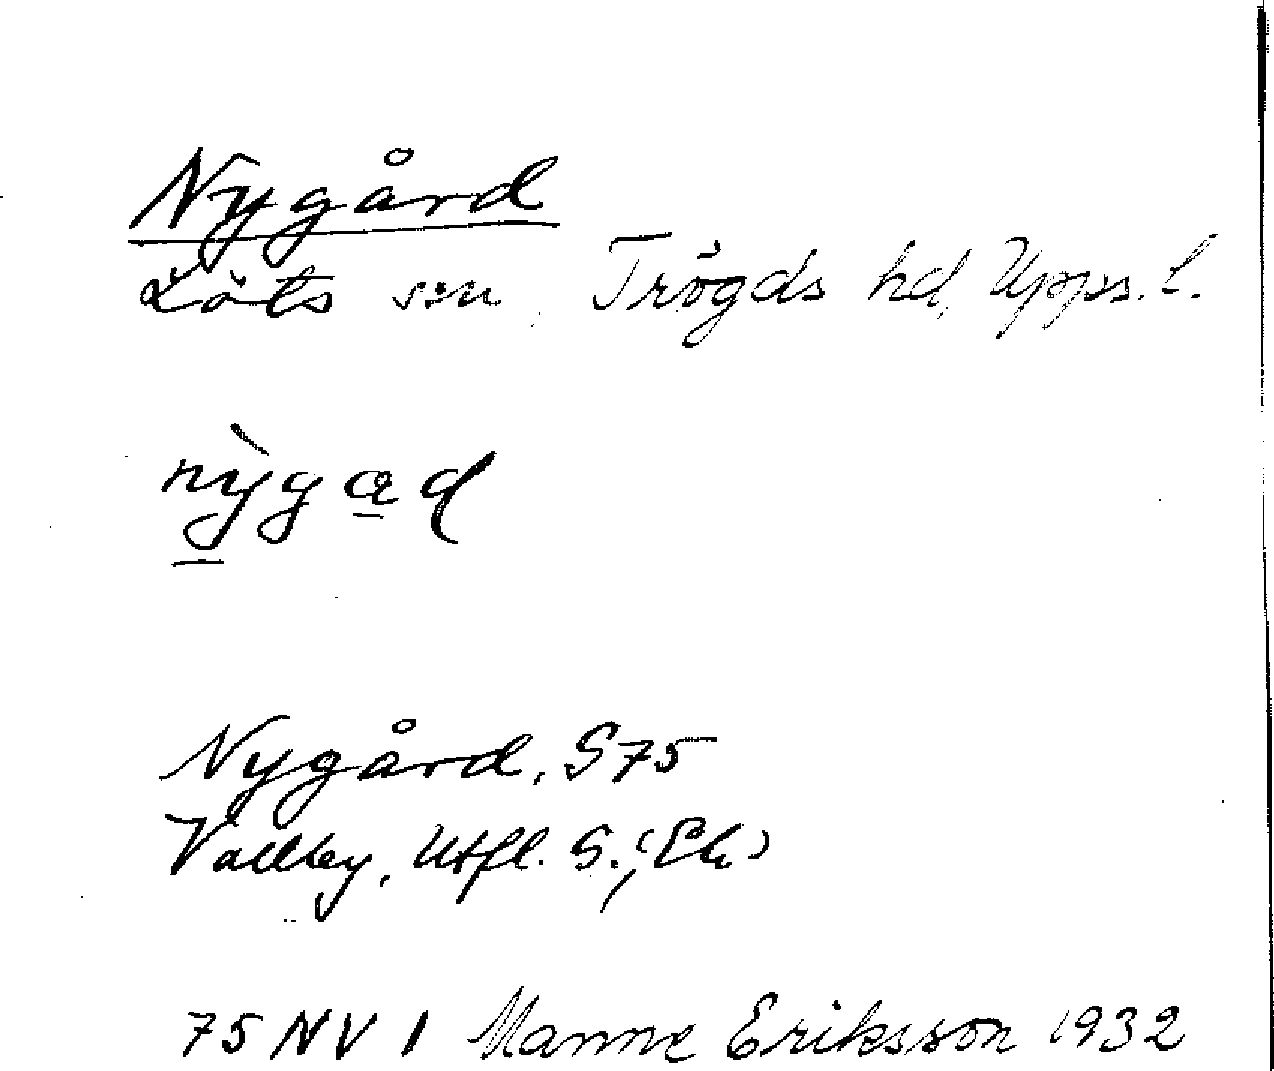 Nygård
Löts sn, Trögds hd, Upps. l.
nỳgad
Nygård, S75
Vallby, Utfl. S., (Ek)
75 NV 1 Manne Eriksson 1932